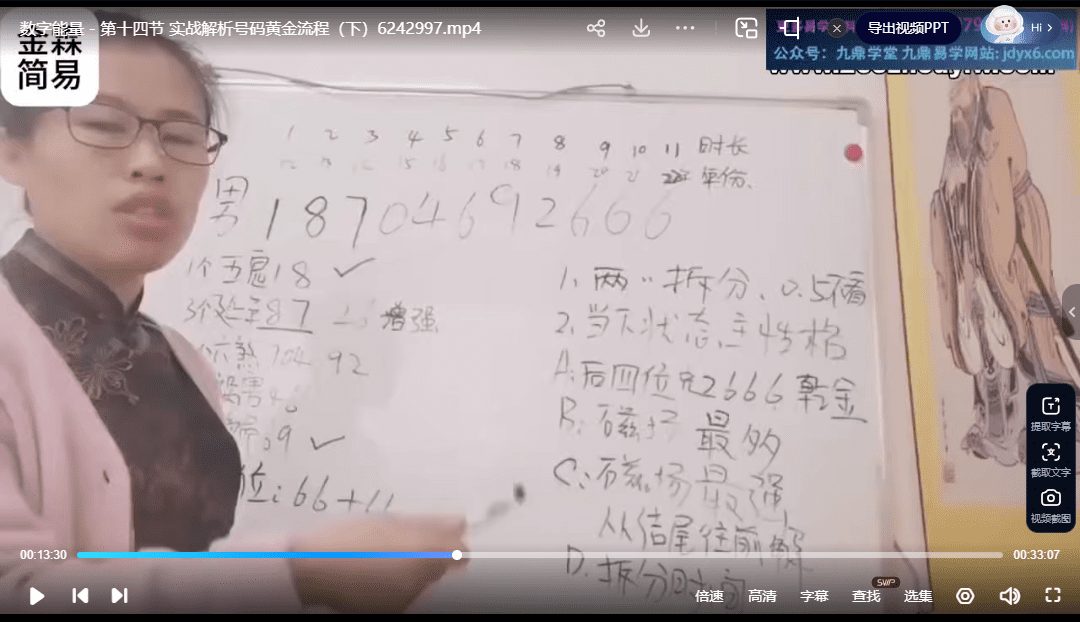 数字能量 - 第十四节 实战解析号码黄金流程（下）6242997.mp4
导出视频PPT
Hi >
公众号：九鼎学堂 九鼎易学网站: jdyx6.com
金霖
简易
1 2 3 4 5 6 7 8 9 10 11 时长
15 18 19 20 21 22 年份
男 18704692666
1个五鬼18 ✓
3个延年87 增强
六煞704 92
祸害
69 ✓
位：66+11
1、两〃拆分、0.5不看
2、当下状态主性格
A：后四位充2666乾金
B：磁场最多
C：磁场最强
从结尾往前解
D、拆分时
提取字幕
截取文字
视频截图
00:13:30
00:33:07
倍速
高清
字幕
SVIP
查找
选集